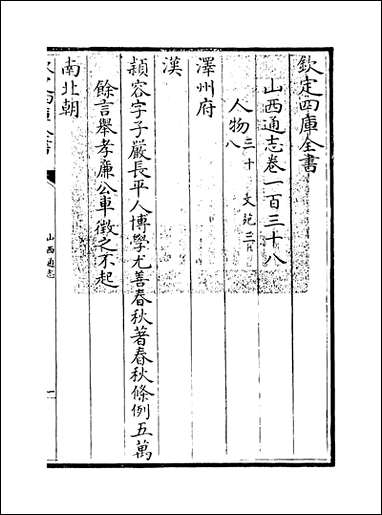 欽定四庫全書
山西通志卷一百三十八
人物三十八 文苑三
澤州府
漢
頴容字子嚴長平人博學尤善春秋著春秋條例五萬
餘言舉孝廉公車徵之不起
南北朝
山西通志